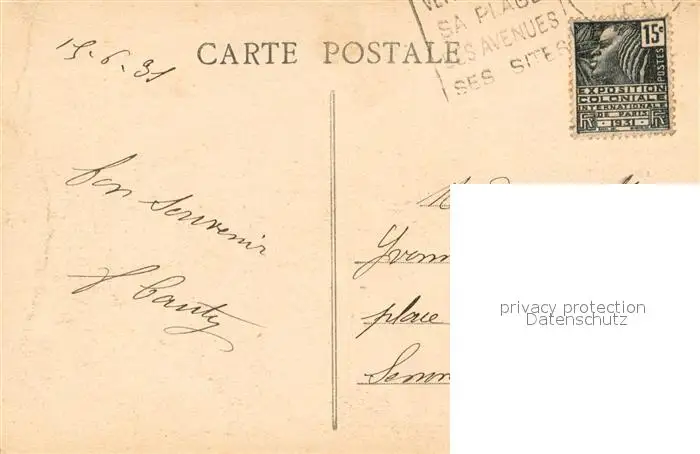 15-6-31
CARTE POSTALE
SA PLAGE
SES AVENUES
SES SITES
15c
POSTES
EXPOSITION
COLONIALE
INTERNATIONALE
DE PARIS
RF 1931 RF
bon souvenir
place
privacy protection
Datenschutz